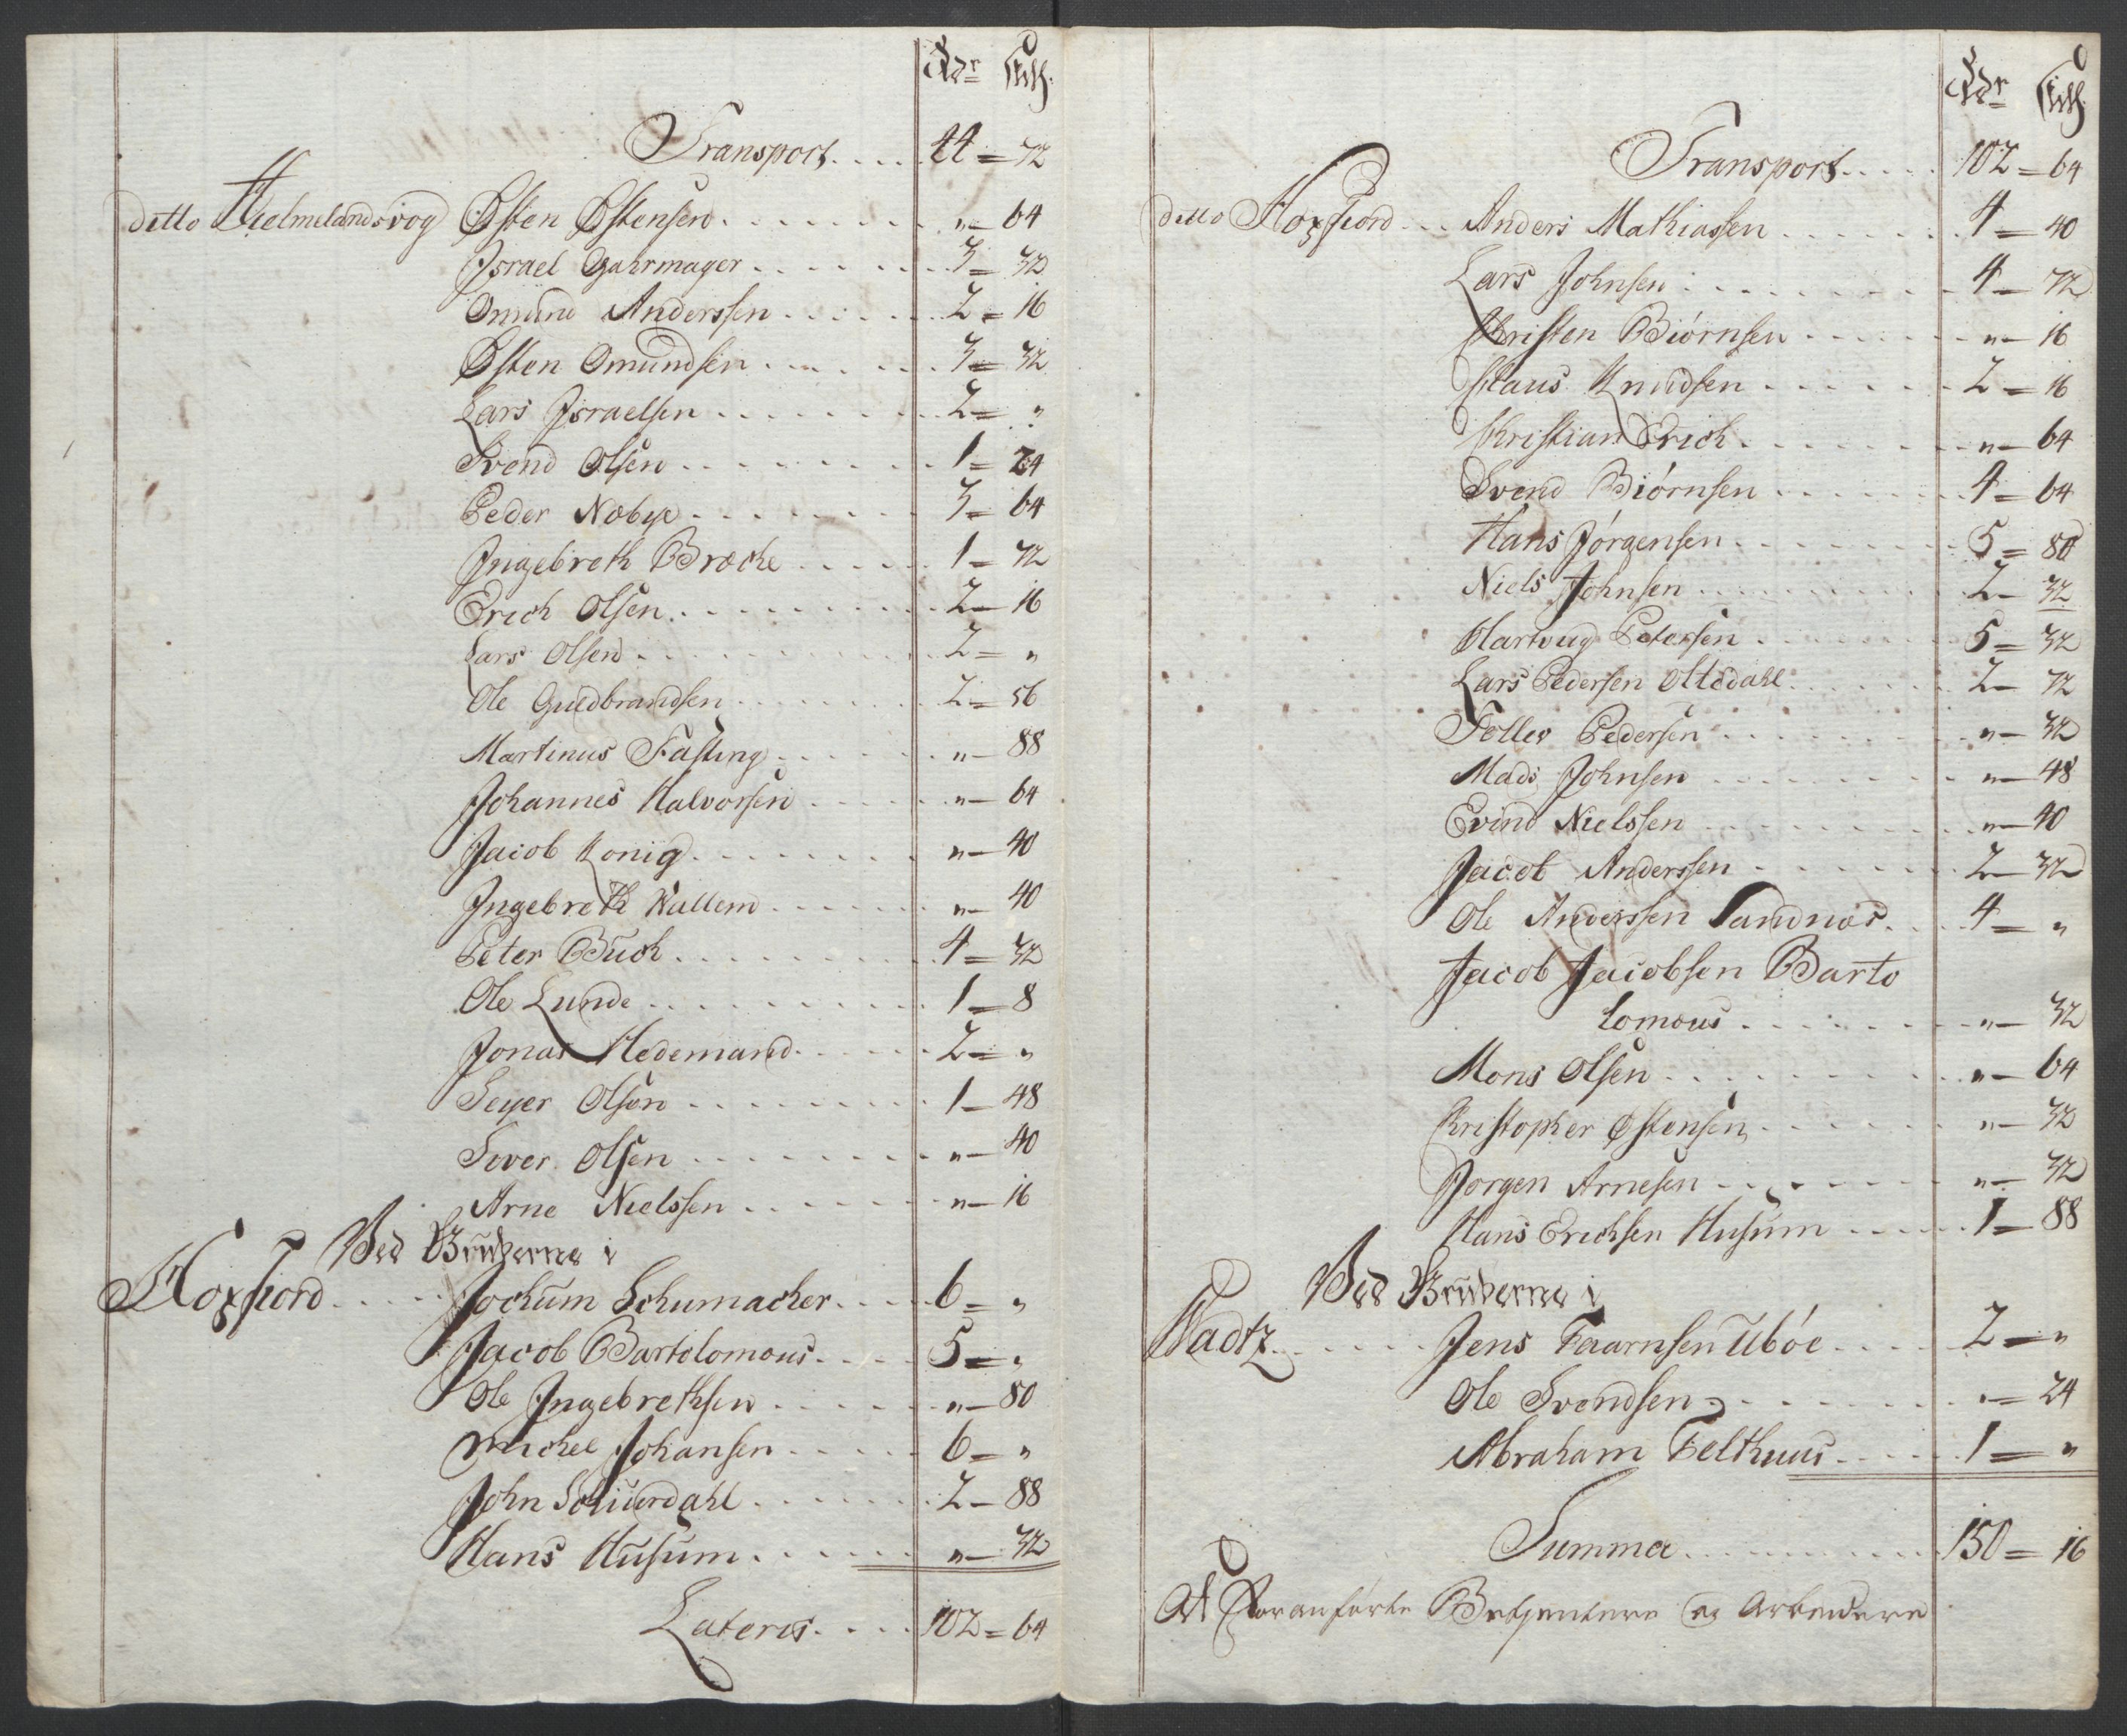 Rdr Skill.
Transport.... 44 = 72
ditto Hielmelandsvog Østen Østensen........ „ – 64
Israel Garmager....... 3 = 32
Omund Anderssen...... 2 = 16
Østen Omundsen...... 3 = 32
Lars Israelsen....... 2 = „
Svend Olsen........ 1 = 24
Peder Nobye....... 3 = 64
Ingebreth Bræcke..... 1 – 72
Erich Olsen........ 2 – 16
Lars Olsen......... 2 = „
Ole Guldbrandsen....... 2 – 56
Martinus Fasting...... „ – 88
Johannes Halvorsen..... „ – 64
Jacob Konig....... „ – 40
Ingebreth Wallem...... „ – 40
Peter Buch........ 4 = 32
Ole Lunde......... 1 – 8
Jonas Hedemand...... 2 = „
Seyer Olsen....... 1 – 48
Siver Olsen........ „ – 40
Arne Nielssen...... „ – 16
Ved Brugerne i
Hoxfiord.... Jochum Schumacher.... 6 = „
Jacob Bartolomous.... 5 = „
Ole Ingebrethsen...... „ – 80
Michel Johansen..... 6 – „
John Soluerdahl..... 2 – 88
Hans Husum..... „ – 32
Lateris.... 102 = 64
Rdr Skill.
Transport..... 102 = 64
ditto Hoxfiord... Anders Mathiassen...... 4 – 40
Lars Johnsen....... 4 – 72
Christen Biørnsen...... „ – 16
Claus Knudsen...... 2 – 16
Christian Erich....... „ – 64
Svend Biørnsen...... 4 – 64
Hans Jørgensen....... 5 = 80
Niels Johnsen........ 2 – 32
Hartvug Petersen...... 5 = 32
Lars Pedersen Oltedahl..... 2 – 72
Toller Pedersen....... „ – 32
Mads Johnsen....... „ – 48
Evind Nielssen....... „ – 40
Jacob Anderssen...... 2 – 32
Ole Anderssen Sandnæs.. 4 – „
Jacob Jacobsen Barto
lomous....... „ – 32
Mons Olsen....... „ – 64
Kristopher Østensen...... „ – 32
Jorgen Arnesen...... „ – 32
Hans Erichsen Husum..... 1 – 88
Ved Brugerne i
Wadtz...... Jens Faarnsen Ubøe.... 2 – „
Ole Svendsen....... „ = 24
Abraham Felthuus..... 1 – „
Summa......... 150 = 16
At Foranførte Betjentere og Arbeidere